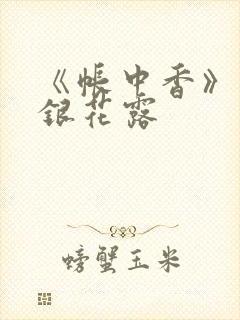 《帳中香》
銀花露
螃蟹玉米